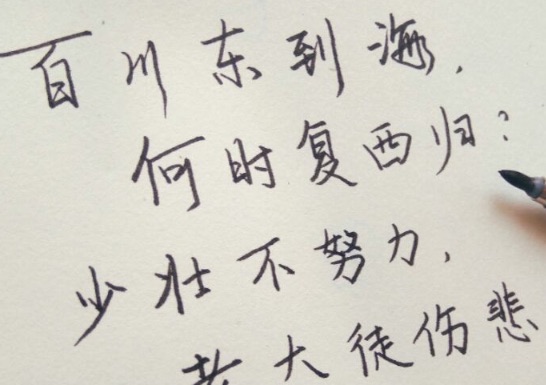 百川东到海,
何时复西归?
少壮不努力,
老大徒伤悲